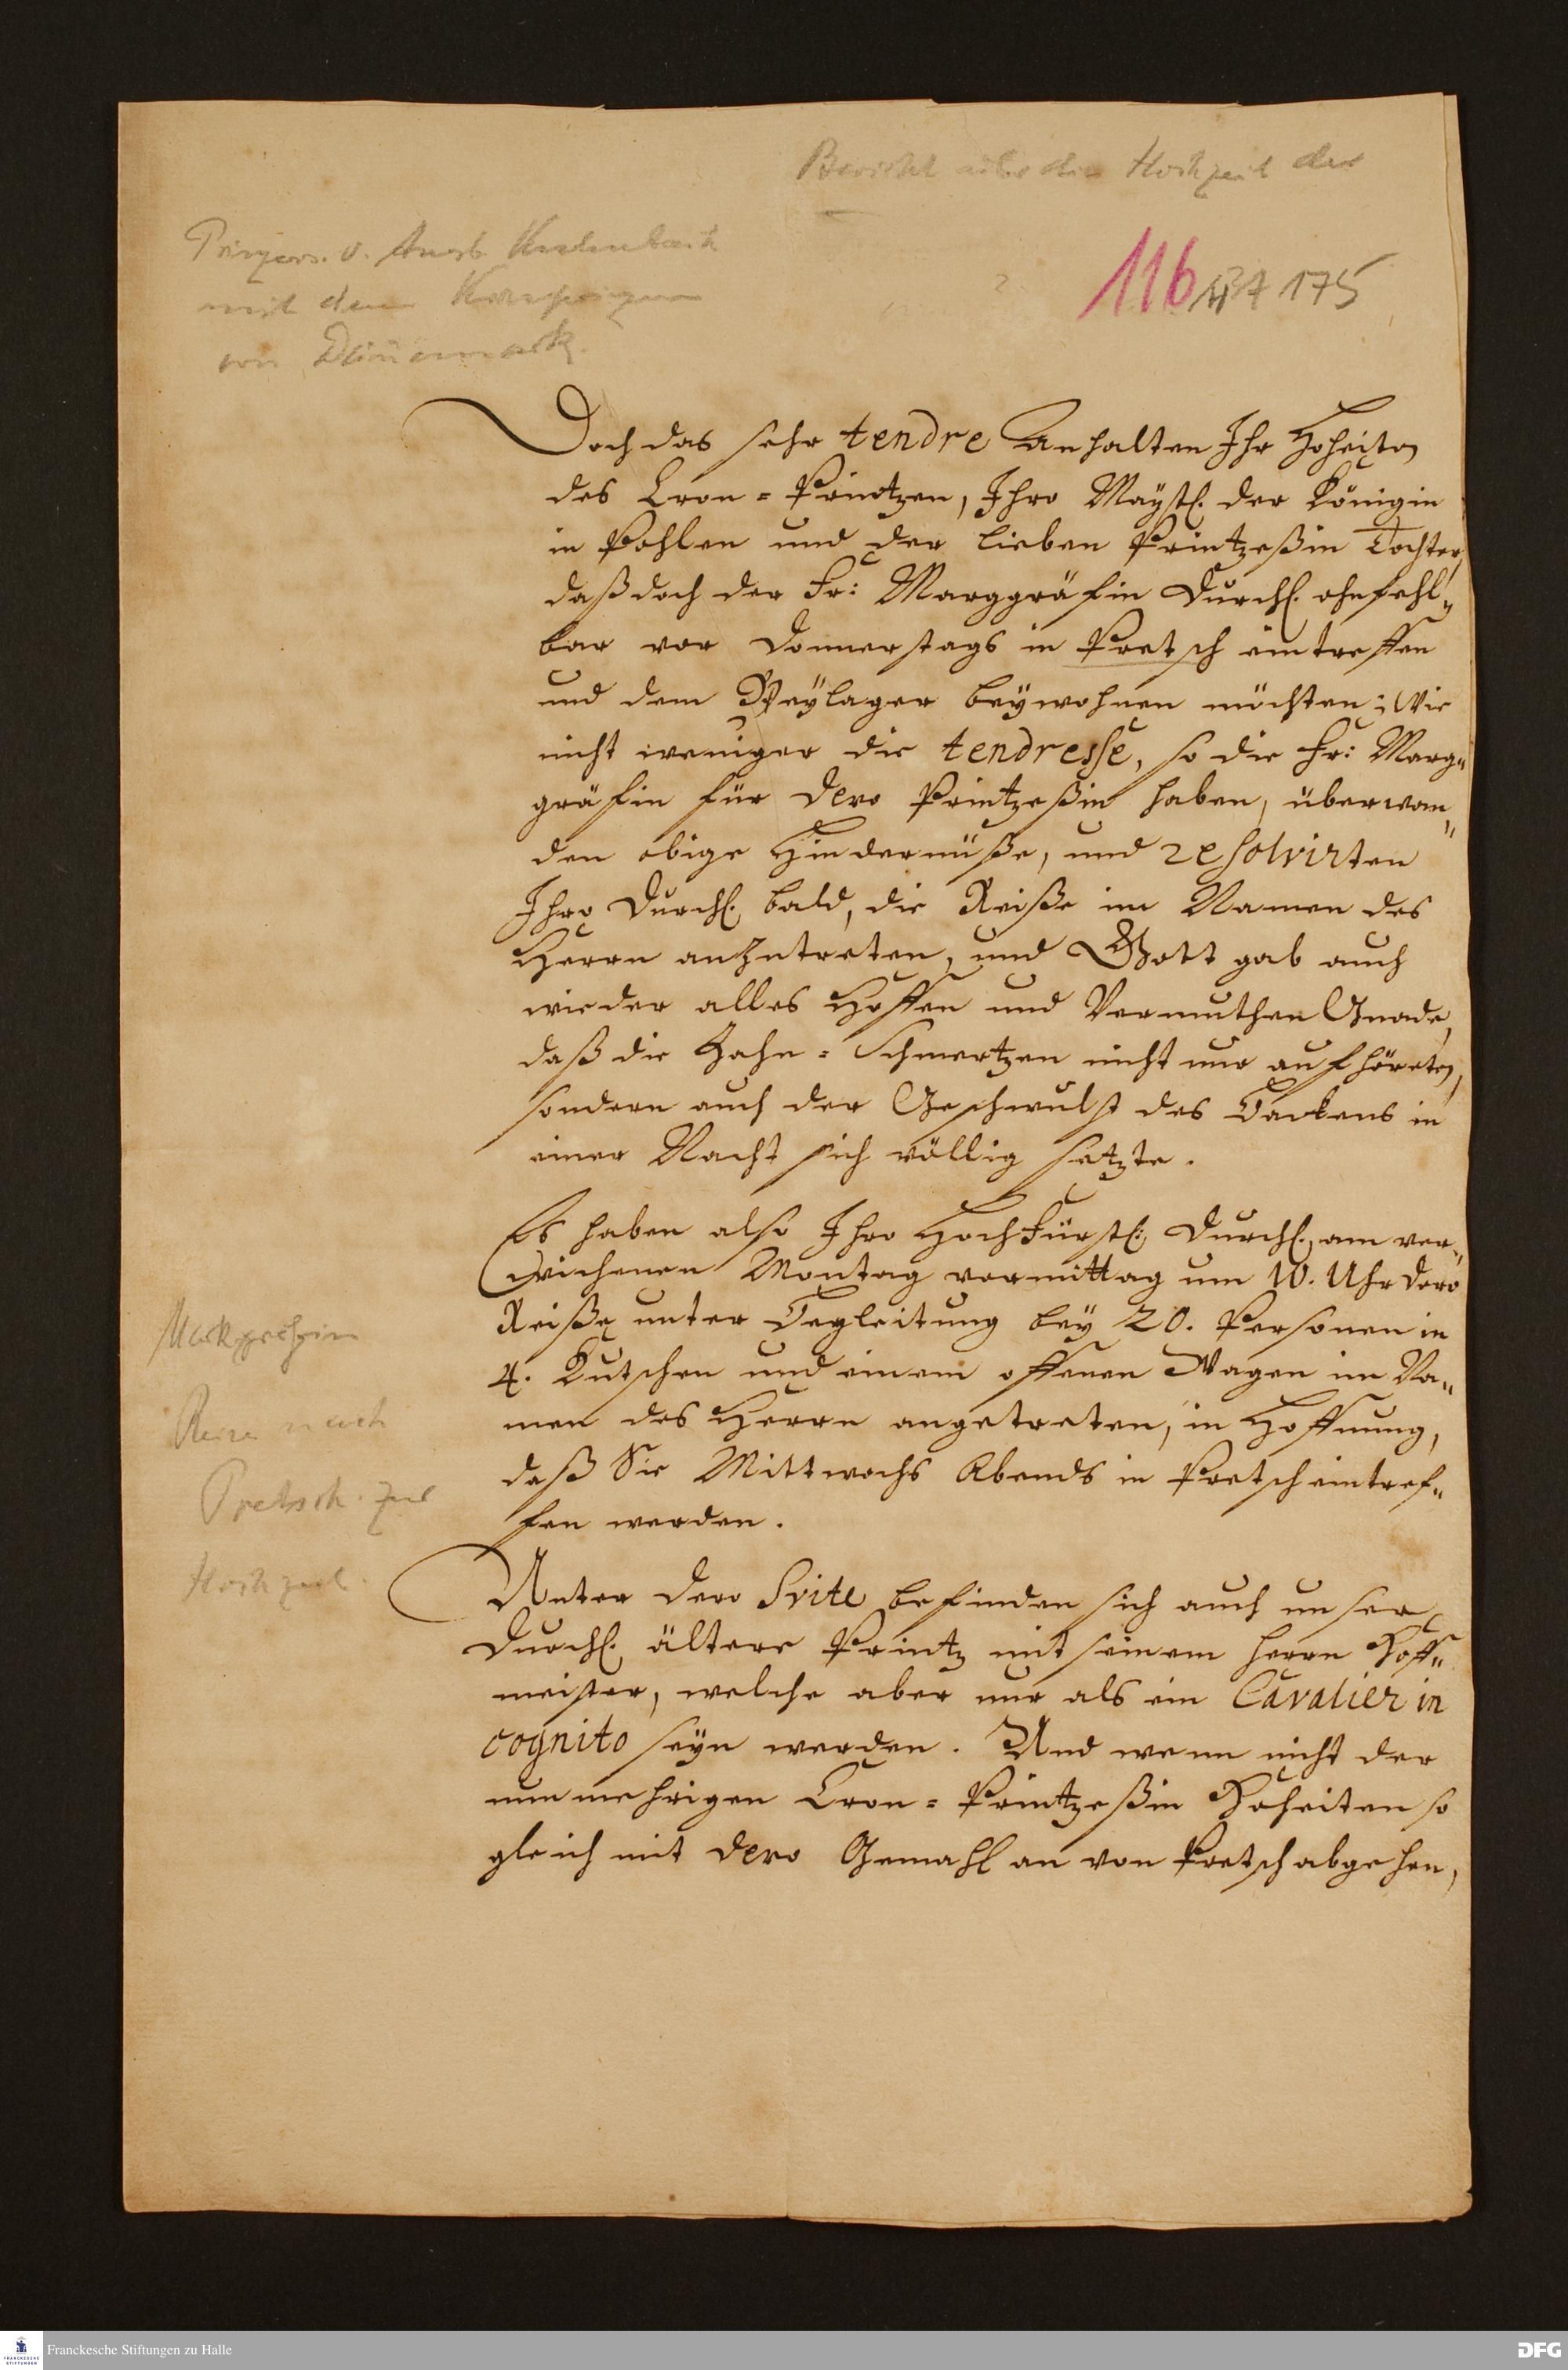 Bericht über die Hochzeit der
Prinzess. v. Kulmbach
mit dem Kronprinzen
von Dänemark.
116 137 175
Doch das sehr tendre Anhalten Ihr Hoheiten
des Cron-Printzen, Ihro Mayst. der Königin
in Pohlen und der lieben Printzeßin Tochter,
daß doch der Fr: Marggräfin Durchl. ohnfehl-
bar vor Donnerstags in Pretsch eintreffen
und dem Beylager beywohnen möchten; Wie
nicht weniger die tendresse, so die Fr: Marg-
gräfin für Dero Printzeßin haben, überwan-
den obige Hindernüße, und resolvirten
Ihro Durchl. bald, die Reiße im Namen des
Herrn anzutreten, und Gott gab auch
wieder alles Hoffen und Vermuthen Gnade,
daß die Zahn-Schmertzen nicht nur aufhöreten,
sondern auch der Geschwulst des Backens in
einer Nacht sich völlig setzte.
Es haben also Ihro HochFürstl: Durchl. am ver-
wichenen Montag vormittag um 10. Uhr Dero
Reiße unter Begleitung bey 20. Personen in
4. Kutschen und einem offenen Wagen im Na-
men des Herrn angetreten, in Hoffnung,
daß Sie Mittwochs Abends in Pretsch eintref-
fen werden.
Markgräfin
Reise nach
Pretsch zur
Hochzeit.
Unter Dero Svite befinden sich auch unser
Durchl. ältere Printz mit seinem Herrn Hoff-
meister, welche aber nur als ein Cavalier in
cognito seyn werden. Und wenn nicht der
nunmehrigen Cron-Printzeßin Hoheiten so
gleich mit Dero Gemahl an von Pretsch abgehen,
Franckesche Stiftungen zu Halle
DFG